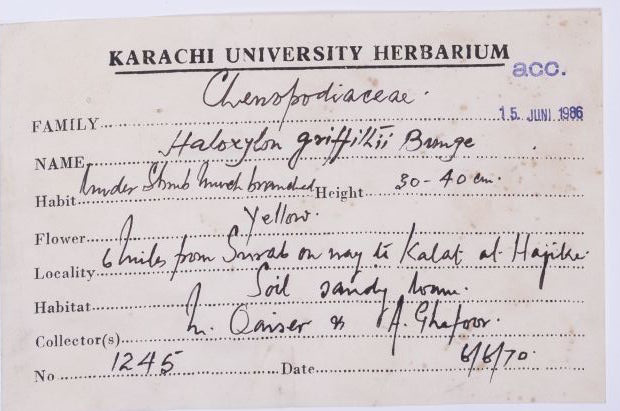 KARACHI UNIVERSITY HERBARIUM
acc.
Chenopodiaceae.
15. JUNI 1986
FAMILY
NAME Haloxylon griffithii Bunge
Habit Under Shrub much branched Height 30-40 cm.
Flower Yellow.
Locality 6 miles from Surab on way to Kalat at Hajike
Habitat Soil sandy loam.
Collector(s) M. Qaiser & A. Ghafoor.
No 1245 Date 6/6/70